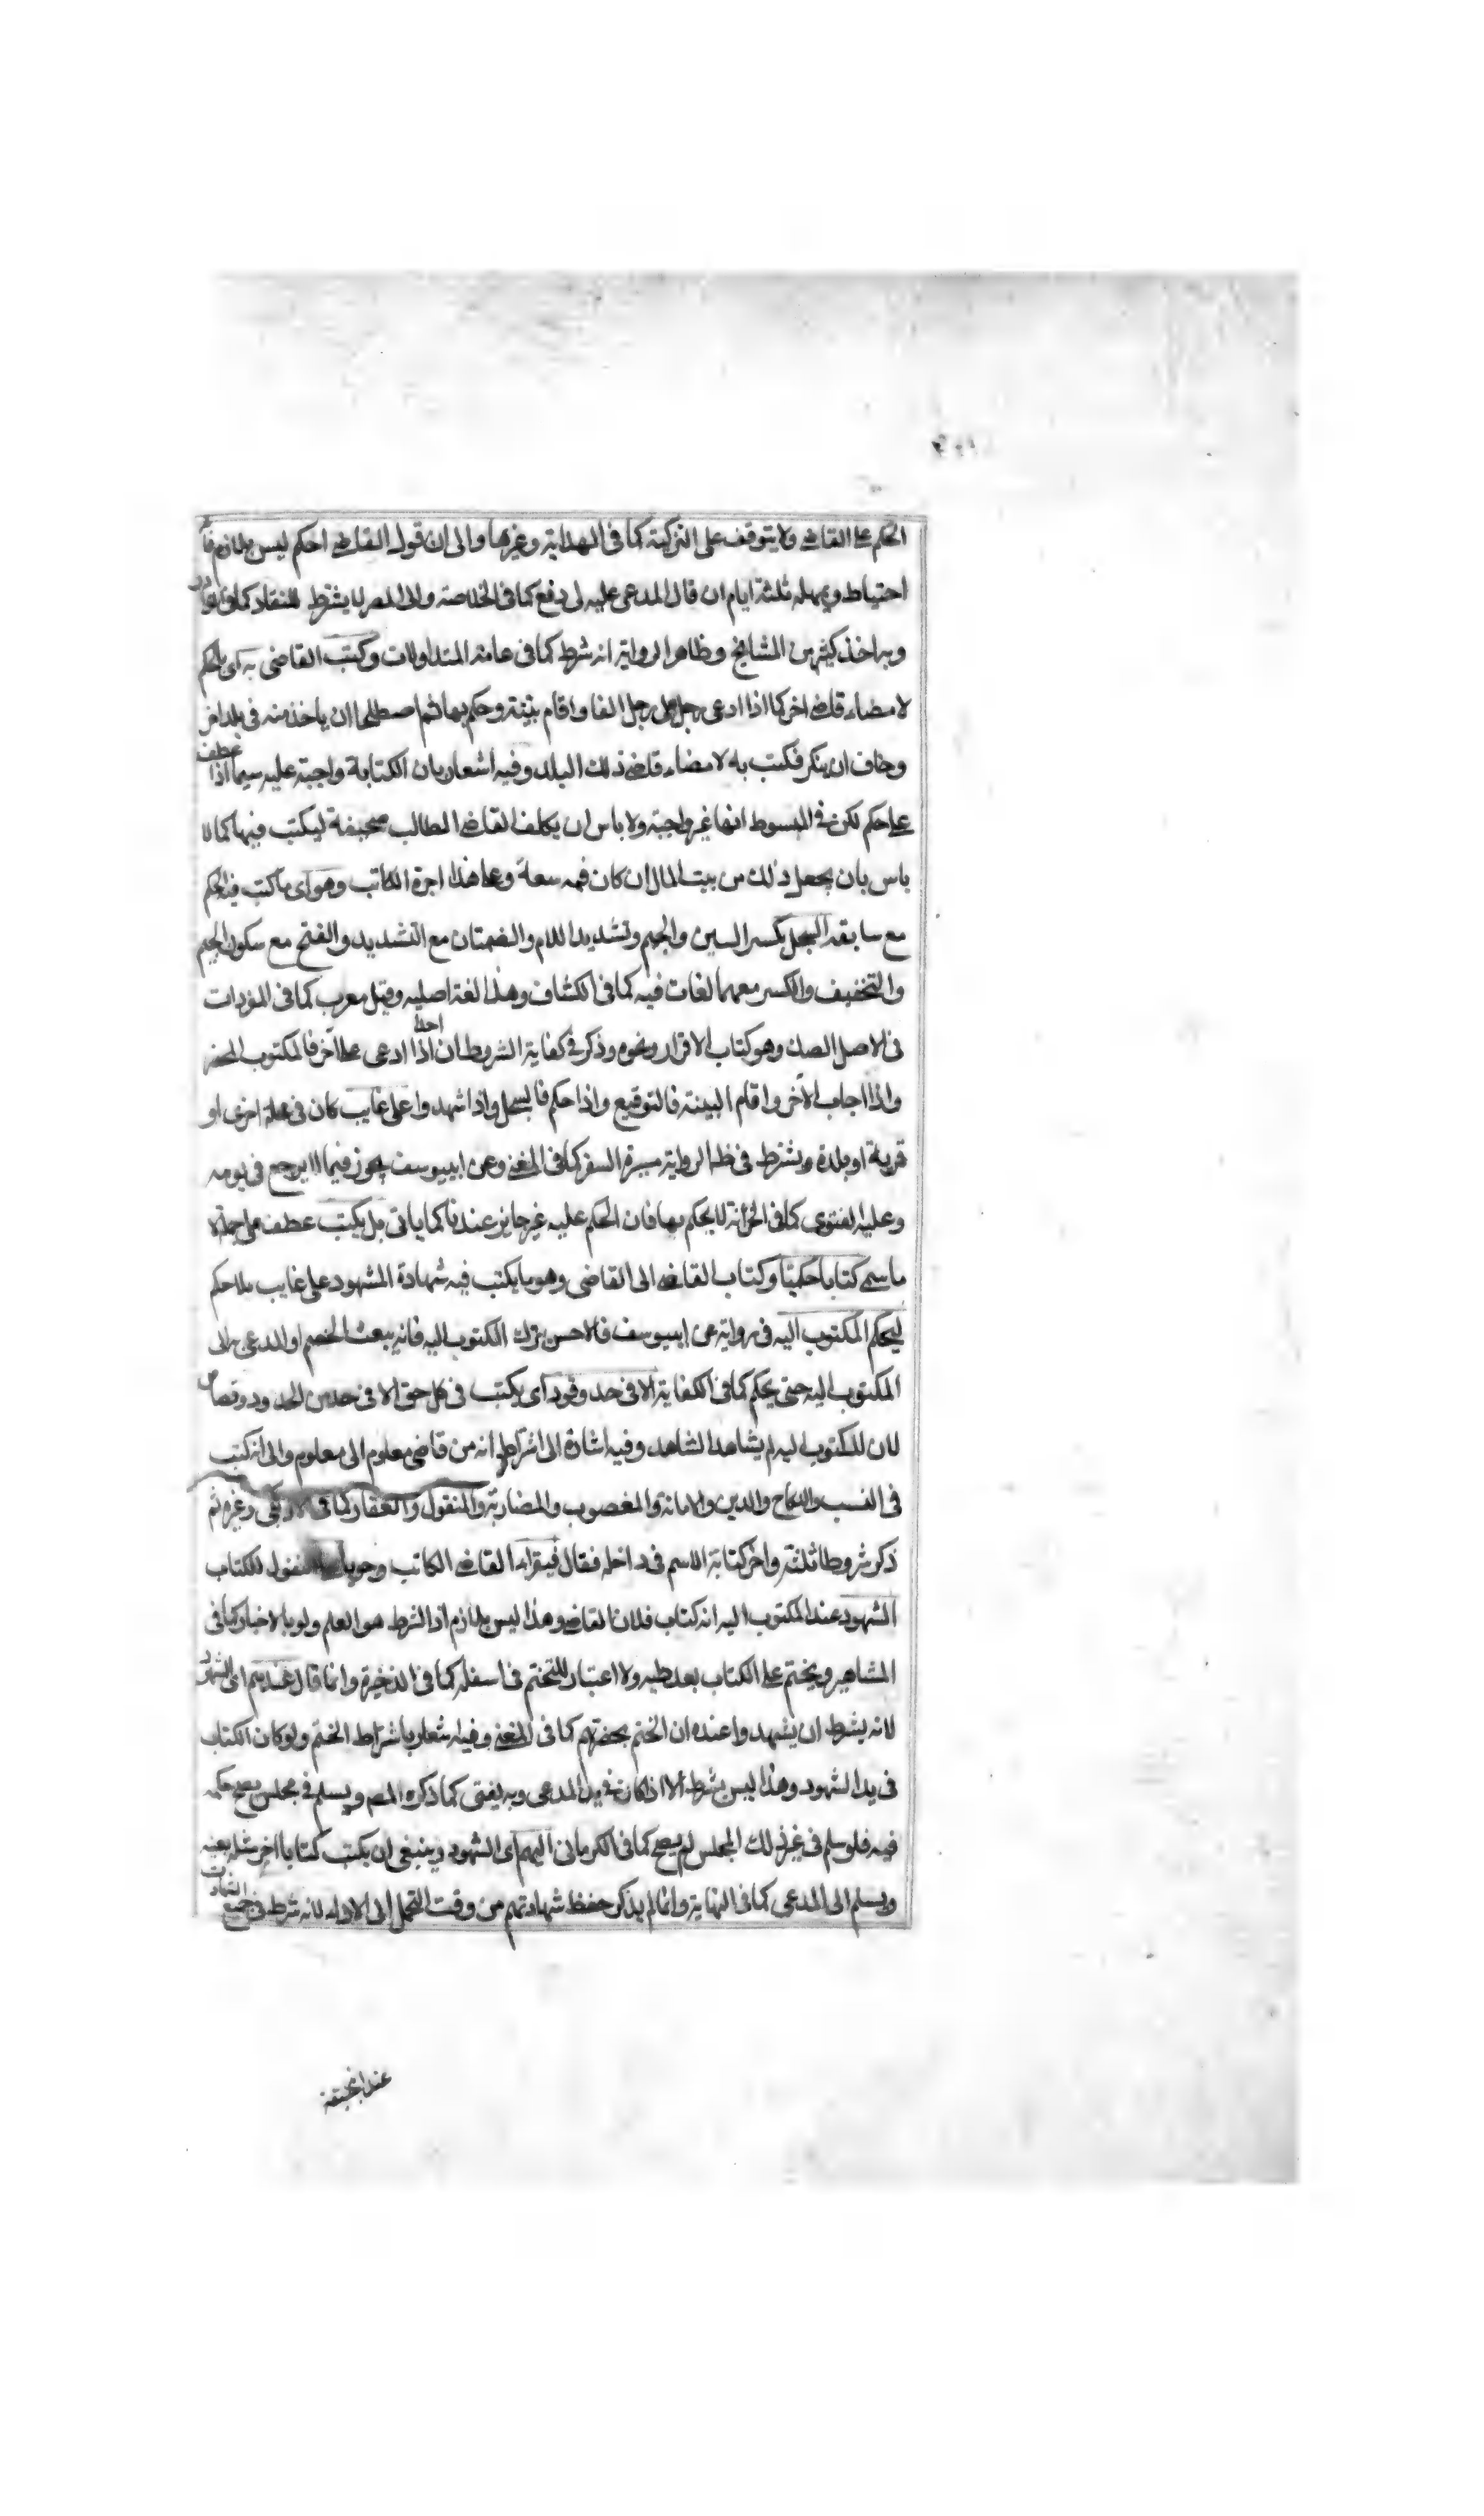 الحكم على القاضي ولا يتوقف على التزكية كما في الهداية وغيرها والى ان قول القاضي احكم ليس بلازم فانه
احتياط ويمهله ثلثة ايام ان قال المدعى عليه لي دفع كما في الخلاصة والى المصر لا يشترط للنفاد كما في
وبه اخذ كثير من المشايخ وظاهر الرواية انه شرط كما في عامة المتداولات وكتب القاضي به اي بالحكم
لامضاء قاض اخر كما اذا ادعى رجل على رجل الفا واقام بينة وحكم بها ثم اصطلحا ان ياخذ منه في بلد اخر
وخاف ان ينكر فكتب به لامضاء قاضي ذلك البلد وفيه اشعار بان الكتابة واجبة عليه سيما اذا عطف
على حكم لكن في المبسوط انها غير واجبة ولا باس ان يكلف القاضي الطالب صحيفة ليكتب فيها كما لا
باس بان يجعل ذلك من بيت المال ان كان فيه سعة وعلى هذا اجرة الكاتب وهو اي ما كتب فيه الحكم
مع سابقه السجل بكسر السين والجيم وتشديد اللام والضمتان مع التشديد والفتح مع سكون الجيم
والتخفيف والكسر معهما لغات فيه كما في الكشاف وهذا لغة اصلية وقيل معرب كما في المفردات
في الاصل الصك وهو كتاب الاقرار ونحوه وذكر في كفاية الشروط ان احدا اذا ادعى على آخر فالمكتوب المحضر
واذا اجاب الآخر واقام البينة فالتوقيع واذا حكم فالسجل واذا شهدوا على غايب كان في محلة اخرى او
قرية او بلدة ويشترط في ظ الرواية مسيرة السفر كما في المغني وعن ابي يوسف يجوز فيما لا يرجع في يومه
وعليه الفتوى كما في الخزانة لا يحكم بها فان الحكم عليه غير جايز عندنا كما ياتي بل يكتب عطف على جملة لا
ما سمي كتابا حكميا وكتاب القاضي الى القاضي وهو ما يكتب فيه شهادة الشهود على غايب بلا حكم
ليحكم المكتوب اليه في رواية عن ابي يوسف فالاحسن ترك المكتوب اليه فانه يبعث الخصم او المدعي الى
المكتوب اليه حتى يحكم كما في الكفاية الا في حد وقود اي يكتب في كل حق الا في حد من الحدود وقصاص
لان المكتوب اليه لم يشاهد الشاهد وفيه اشارة الى اشتراط انه من قاضي معلوم الى معلوم والى انه كتب
في النسب والنكاح والدين والامانة والمغصوب والمضاربة والمنقول والعقار كما في وغيره ثم
ذكر شروطا ثلثة واخر كتابة الاسم في داخله فقال فيقراء القاضي الكاتب وجوبا المنقول للكتاب
الشهود عند المكتوب اليه انه كتاب فلان القاضي وهذا ليس بلازم اذ الشرط هو العلم ولو بالاخبار كما في
المشاهير ويختم على الكتاب بعد طيه ولا اعتبار للتختم في اسفله كما في الذخيرة وانما قال عندهم اي الشهود
لانه يشترط ان يشهدوا عنده ان الختم بحضرتهم كما في المغني وفيه شعار باشتراط الختم ولو كان الكتاب
في يد الشهود وهذا ليس بشرط الا اذا كان في يد المدعي وبه يفتى كما ذكره المصـ ويسلم في مجلس يصح حكمه
فيه فلو سلم في غير ذلك المجلس لم يصح كما في الكرماني اليهم اي الشهود وينبغي ان يكتب كتابا اخر مثله بعينه
ويسلم الى المدعي كما في النهاية وانما لم يذكر حفظ شهادتهم من وقت التحمل الى الاداء لانه شرط في جميع الشهادات
عند ابي حنيفة